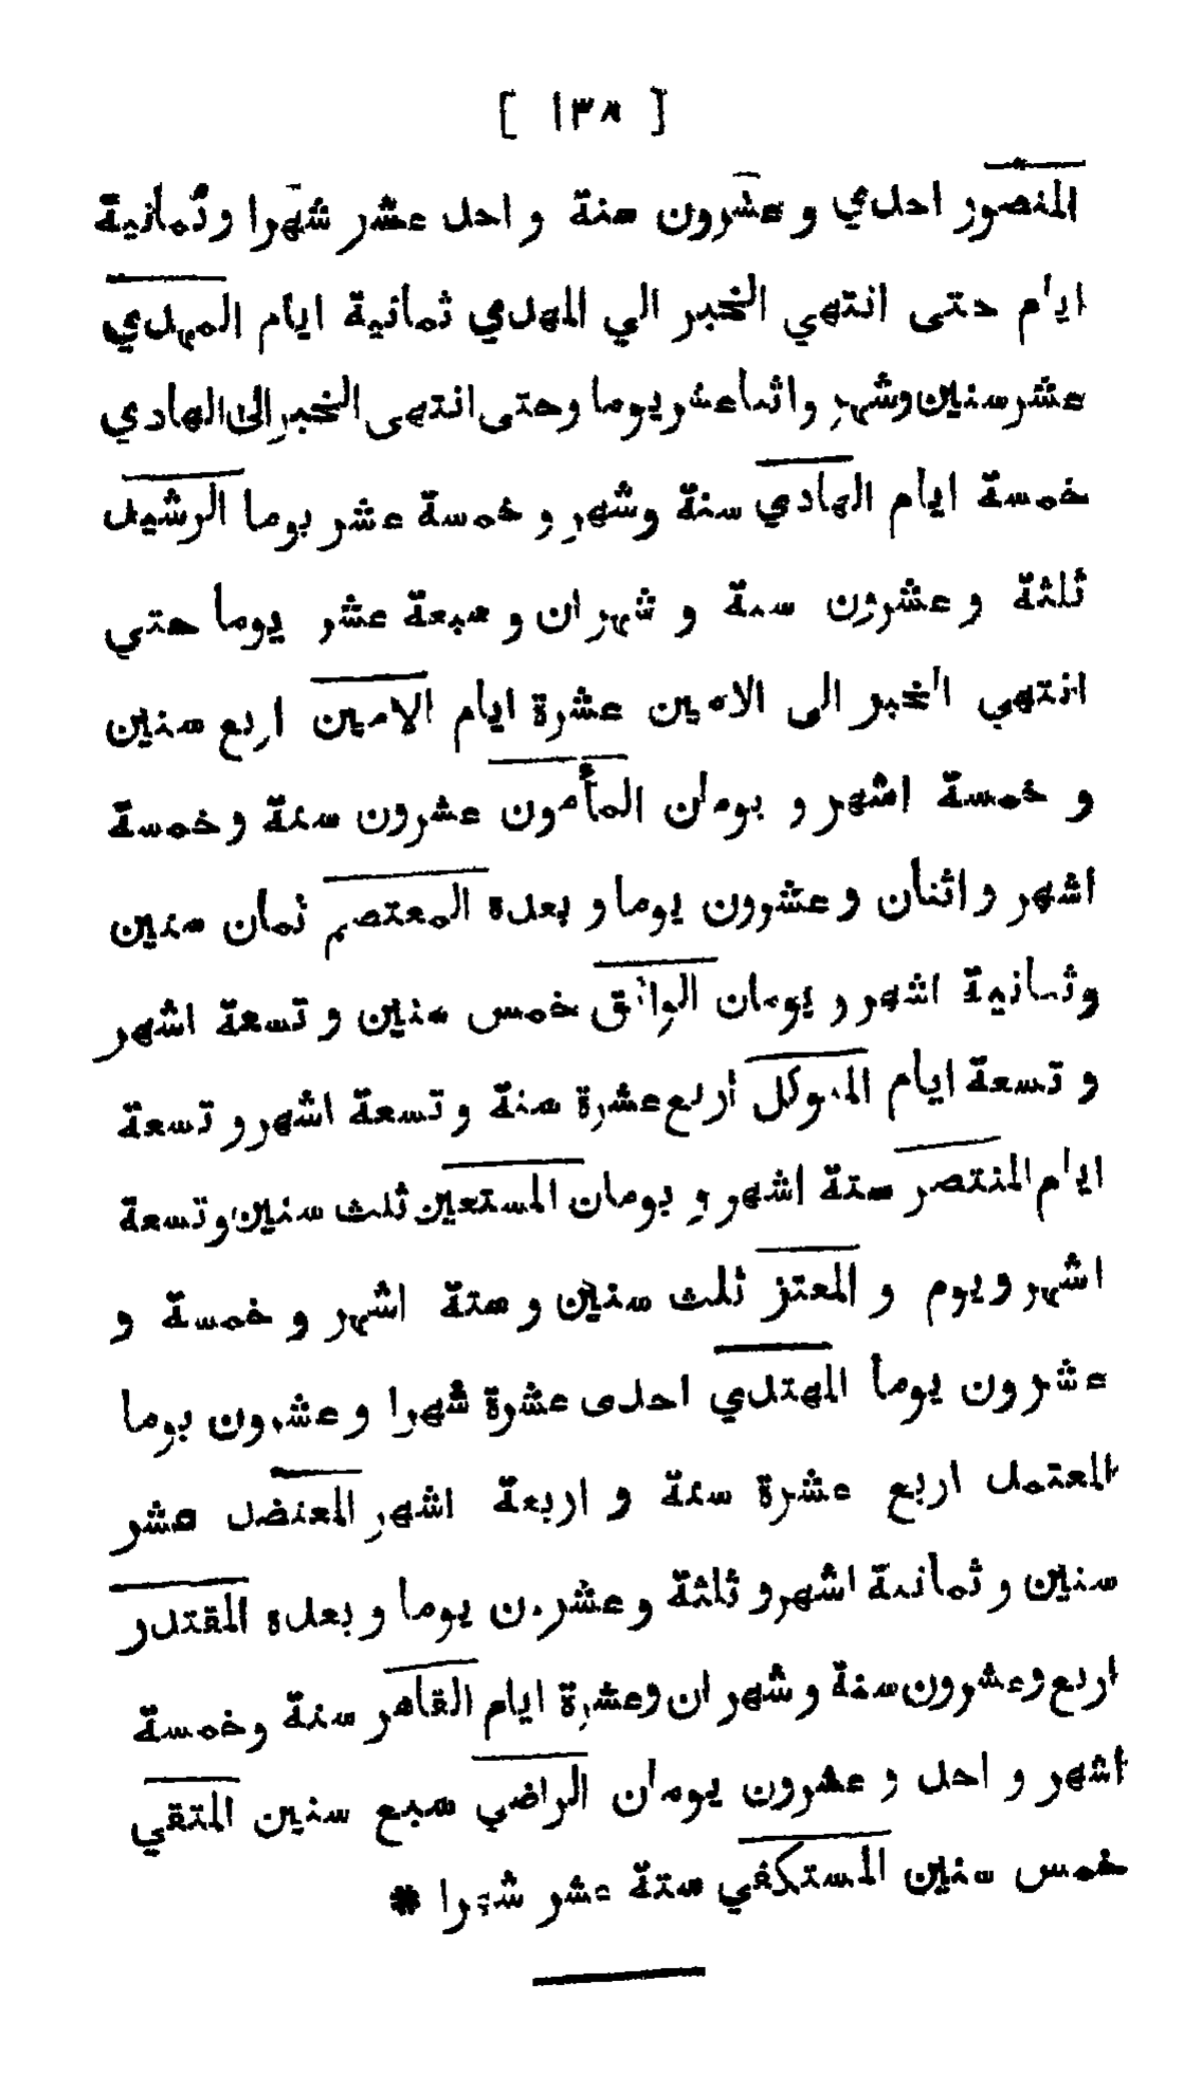 [ ١٣٨ ]
المنصور احدي و عشرون سنة و احد عشر شهرا و ثمانية
ايام حتى انتهي الخبر الي المهدي ثمانية ايام المهدي
عشر سنين وشهر واثنا عشر يوما وحتى انتهى الخبر إلى الهادي
خمسة ايام الهادي سنة وشهر و خمسة عشر يوما الرشيد
ثلثة و عشرون سنة و شهران و سبعة عشر يوما حتي
انتهي الخبر الى الامين عشرة ايام الامين اربع سنين
و خمسة اشهر و يومان المأمون عشرون سنة و خمسة
اشهر و اثنان و عشرون يوما و بعده المعتصم ثمان سنين
وثمانية اشهر و يومان الواثق خمس سنين و تسعة اشهر
و تسعة ايام المتوكل اربع عشرة سنة و تسعة اشهر و تسعة
ايام المنتصر ستة اشهر و يومان المستعين ثلث سنين و تسعة
اشهر و يوم و المعتز ثلث سنين و ستة اشهر و خمسة و
عشرون يوما المهتدي احدى عشرة شهرا و عشرون يوما
المعتمد اربع عشرة سنة و اربعة اشهر المعتضد عشر
سنين و ثمانية اشهر و ثلثة و عشرون يوما و بعده المقتدر
اربع وعشرون سنة و شهران وعشرة ايام القاهر سنة وخمسة
اشهر و احد و عشرون يومان الراضي سبع سنين المتقي
خمس سنين المستكفي ستة عشر شهرا *